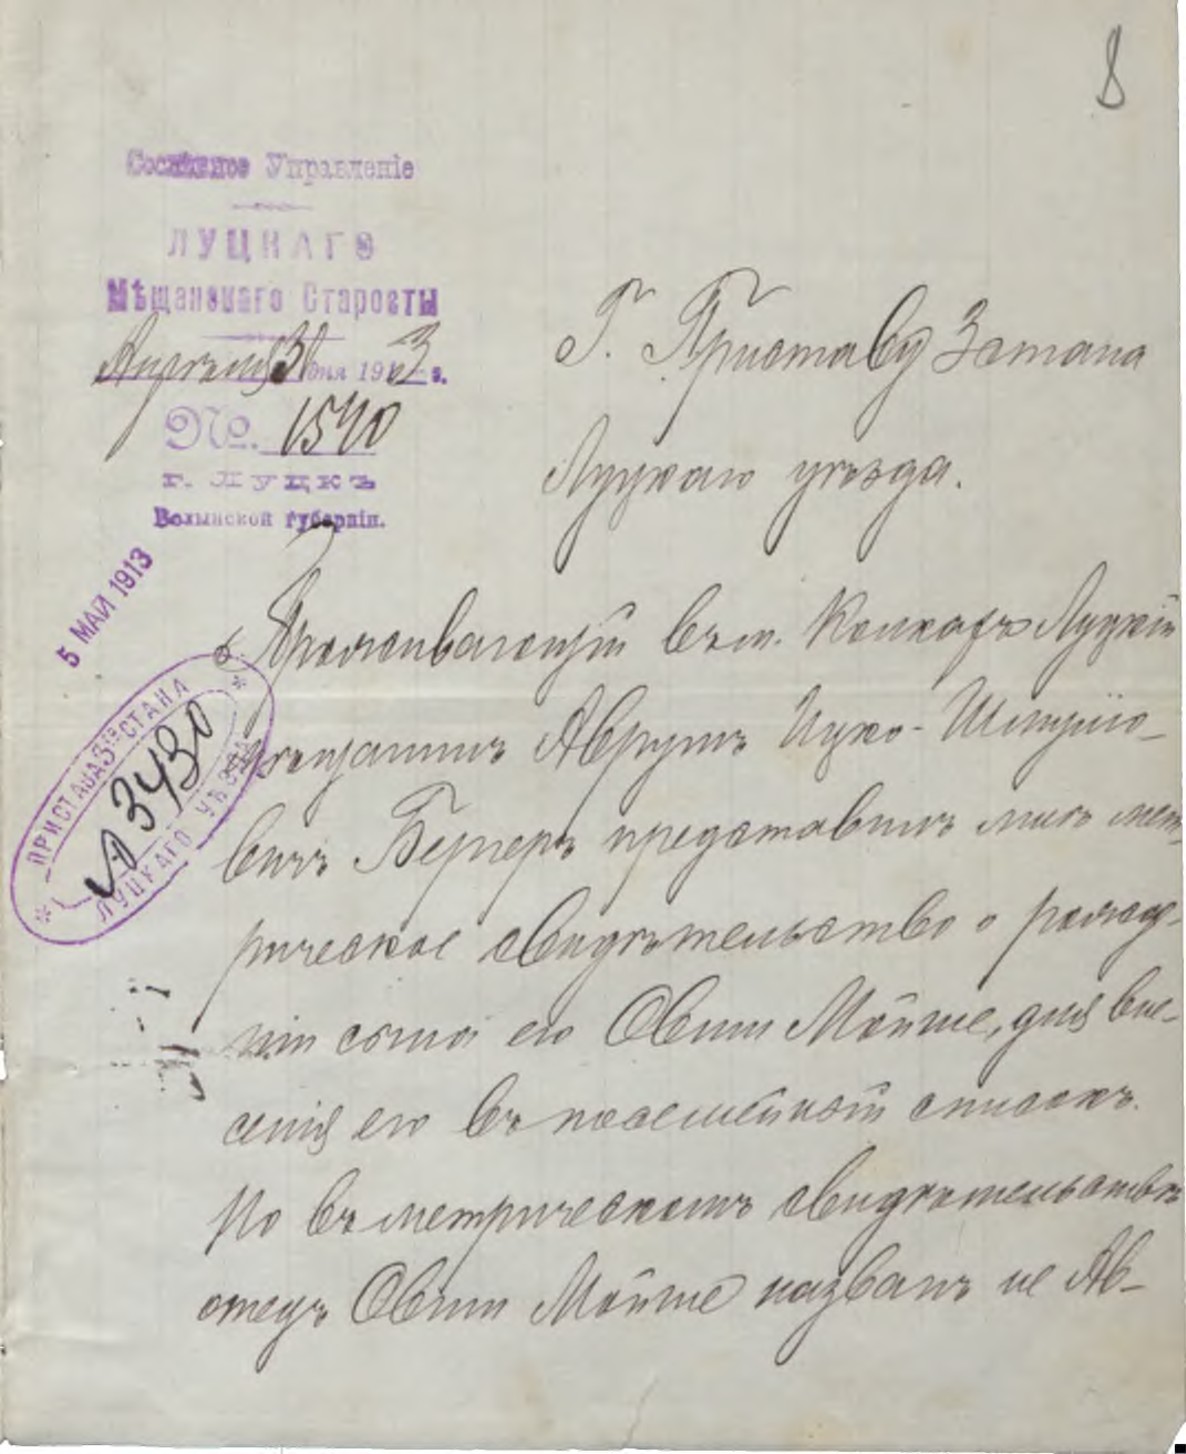 8
Сословное Управленіе
ЛУЦКАГО
Мѣщанскаго Старосты
Апрѣля 30 дня 1913 г.
№. 1540
г. Луцкъ
Волынской губерніи.
Г. Приставу 3 стана
Луцкаго уѣзда.
5 МАЙ 1913
ПРИСТАВА 3го СТАНА
№ 3430
ЛУЦКАГО УѢЗДА
Проживающій въ м. Колкахъ Луцкій
мѣщанинъ Аврумъ Ицко-Шмуліо-
вичъ Бергеръ представилъ мнѣ мет-
рическое свидѣтельство о рожде-
ніи сына его Овши Мойше, для вне-
сенія его въ посемейный списокъ.
Но въ метрическомъ свидѣтельствѣ
отецъ Овши Мойше названъ не Ав-